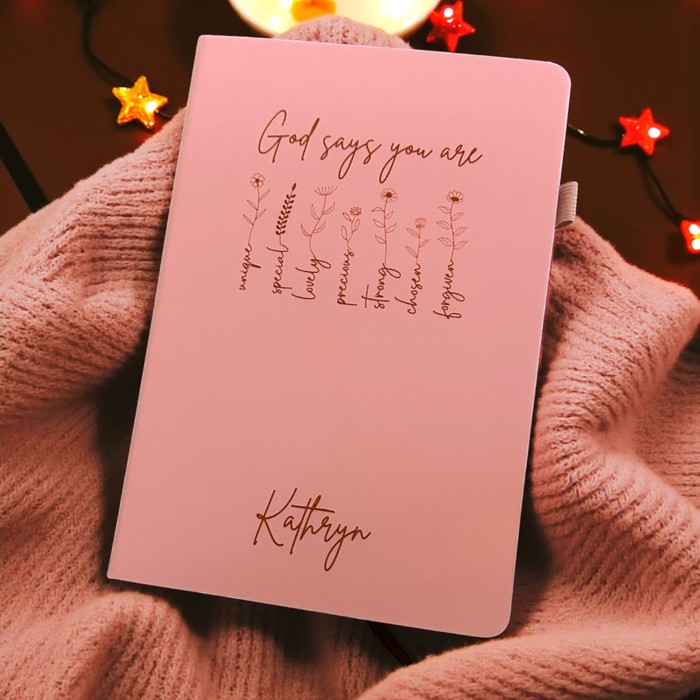 God says you are
unique
special
lovely
precious
strong
chosen
forgiven
Kathryn